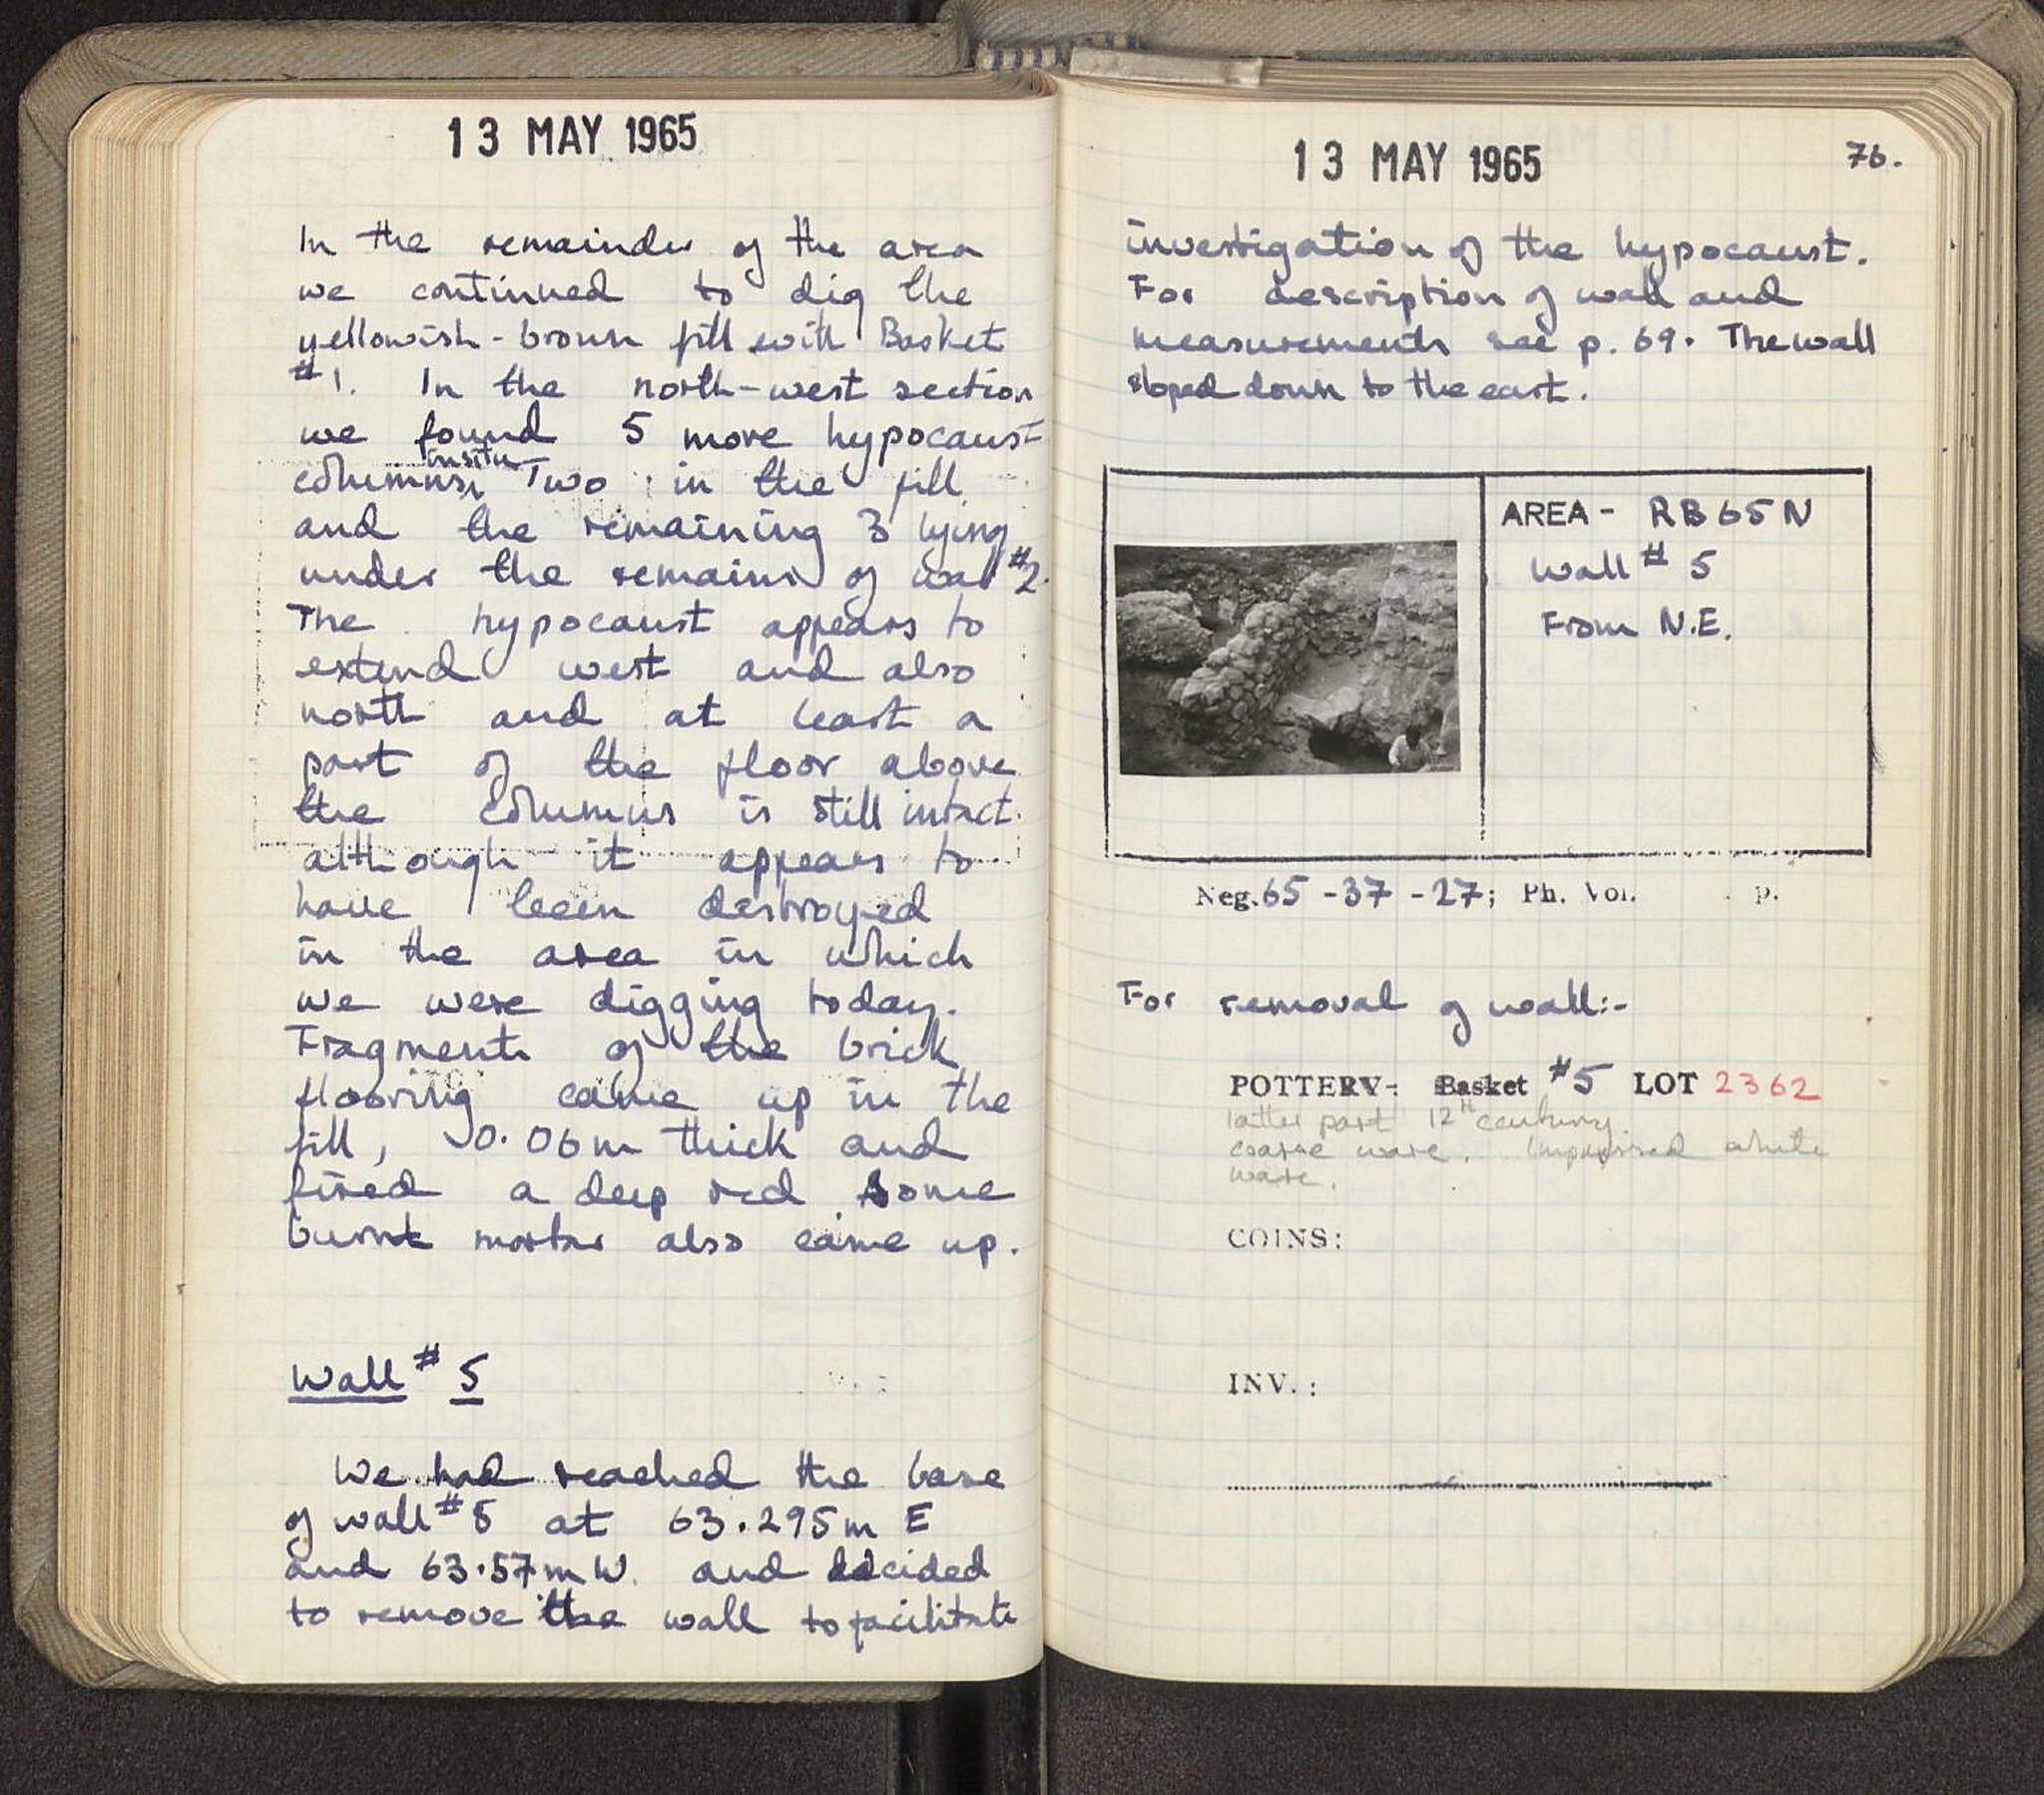 13 MAY 1965
In the remainder of the area
we continued to dig the
yellowish-brown fill with Basket
#1. In the north-west section
we found 5 more hypocaust
insitu
columns, Two in the fill
and the remaining 3 lying
under the remains of wall #2.
The hypocaust appears to
extend west and also
north and at least a
part of the floor above
the columns is still intact
although it appears to
have been destroyed
in the area in which
we were digging today.
Fragments of the brick
flooring came up in the
fill, 0.06m thick and
fired a deep red. Some
burnt mortar also came up.
Wall # 5
We had reached the base
of wall #5 at 63.295m E
and 63.57m W. and decided
to remove the wall to facilitate
13 MAY 1965
76.
investigation of the hypocaust.
For description of wall and
measurements see p. 69. The wall
sloped down to the east.
AREA - RB65N
Wall # 5
From N.E.
Neg. 65-37-27; Ph. Vol. p.
For removal of wall:-
POTTERY: Basket #5 LOT 2362
latter part 12th century
coarse ware. Impressed white
ware.
COINS:
INV.: